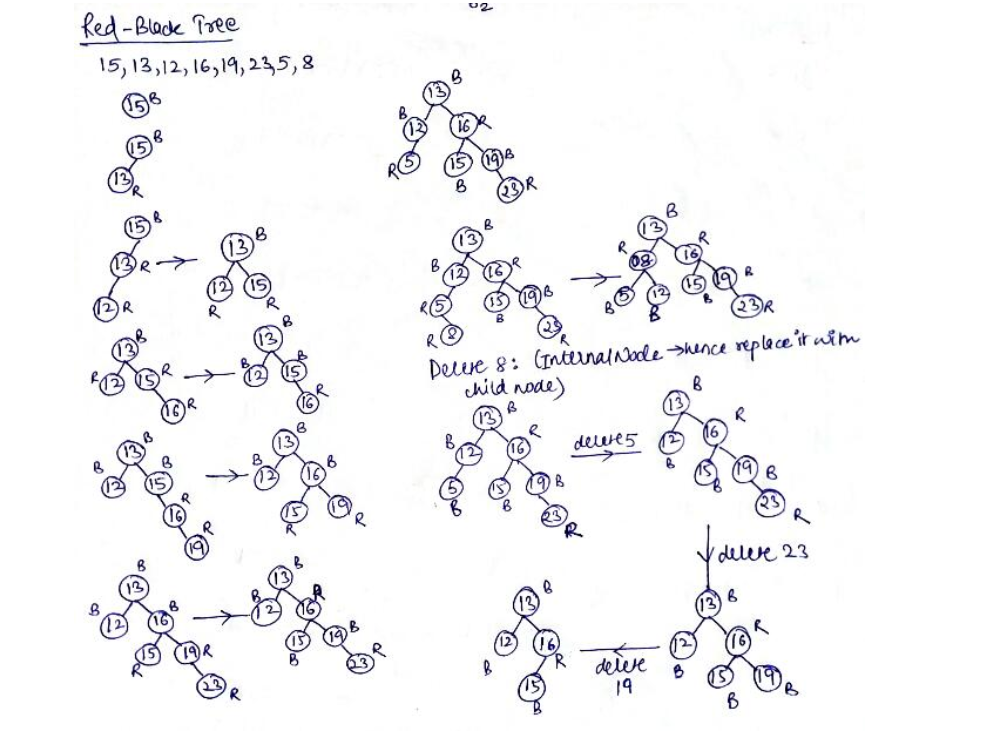 02
Red-Black Tree
15, 13, 12, 16, 19, 23, 5, 8
15 B
15 B
13 R
15 B
13 R
12 R
13 B
12 R
15 R
13 B
R 12
15 R
16 R
13 B
B 12
15 B
16 R
13 B
B 12
15 B
16 R
19 R
13 B
B 12
16 B
15 R
19 R
13 B
B 12
16 B
15 R
19 R
23 R
13 B
B 12
16 R
15 B
19 B
23 R
13 B
B 12
16 R
R 5
15 B
19 B
23 R
13 B
B 12
16 R
R 5
15 B
19 B
R 8
23 R
13 B
R 08
16 R
B 5
12 B
15 B
19 B
23 R
Delete 8: (Internal Node → hence replace it with
child node)
13 B
B 12
16 R
5 B
15 B
19 B
23 R
delete 5
13 B
12 B
16 R
15 B
19 B
23 R
delete 23
13 B
12 B
16 R
15 B
19 B
delete
19
13 B
12 B
16 R
15 B